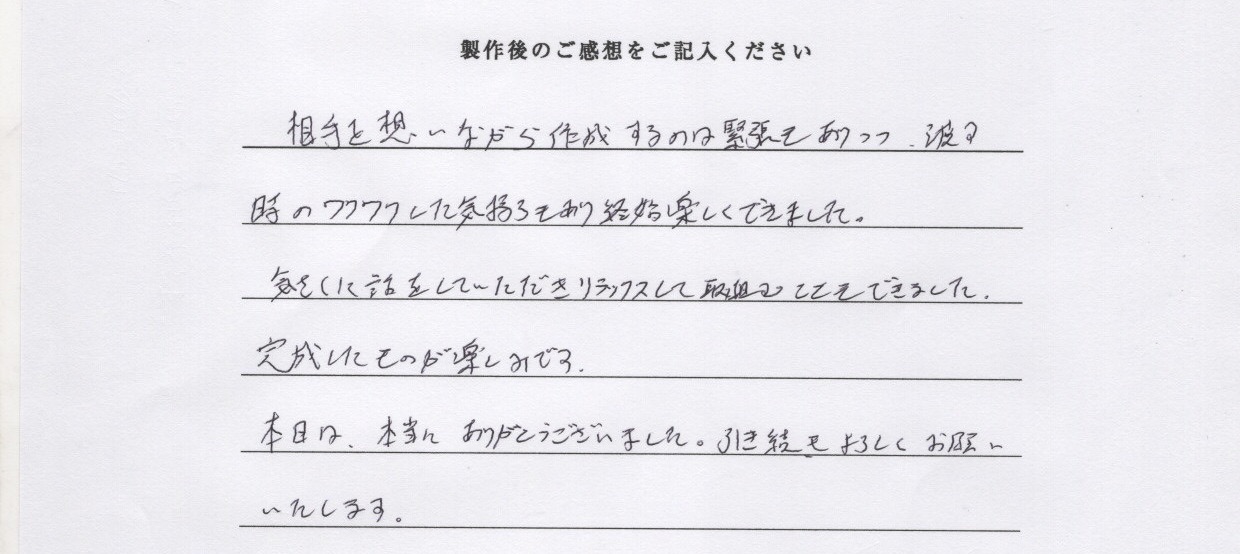 製作後のご感想をご記入ください
相手を想いながら作成するのは緊張もありつつ、渡す
時のワクワクした気持ちもあり終始楽しくできました。
気さくに話をしていただきリラックスして取組むこともできました。
完成したものが楽しみです。
本日は、本当にありがとうございました。引き続きよろしくお願い
いたします。